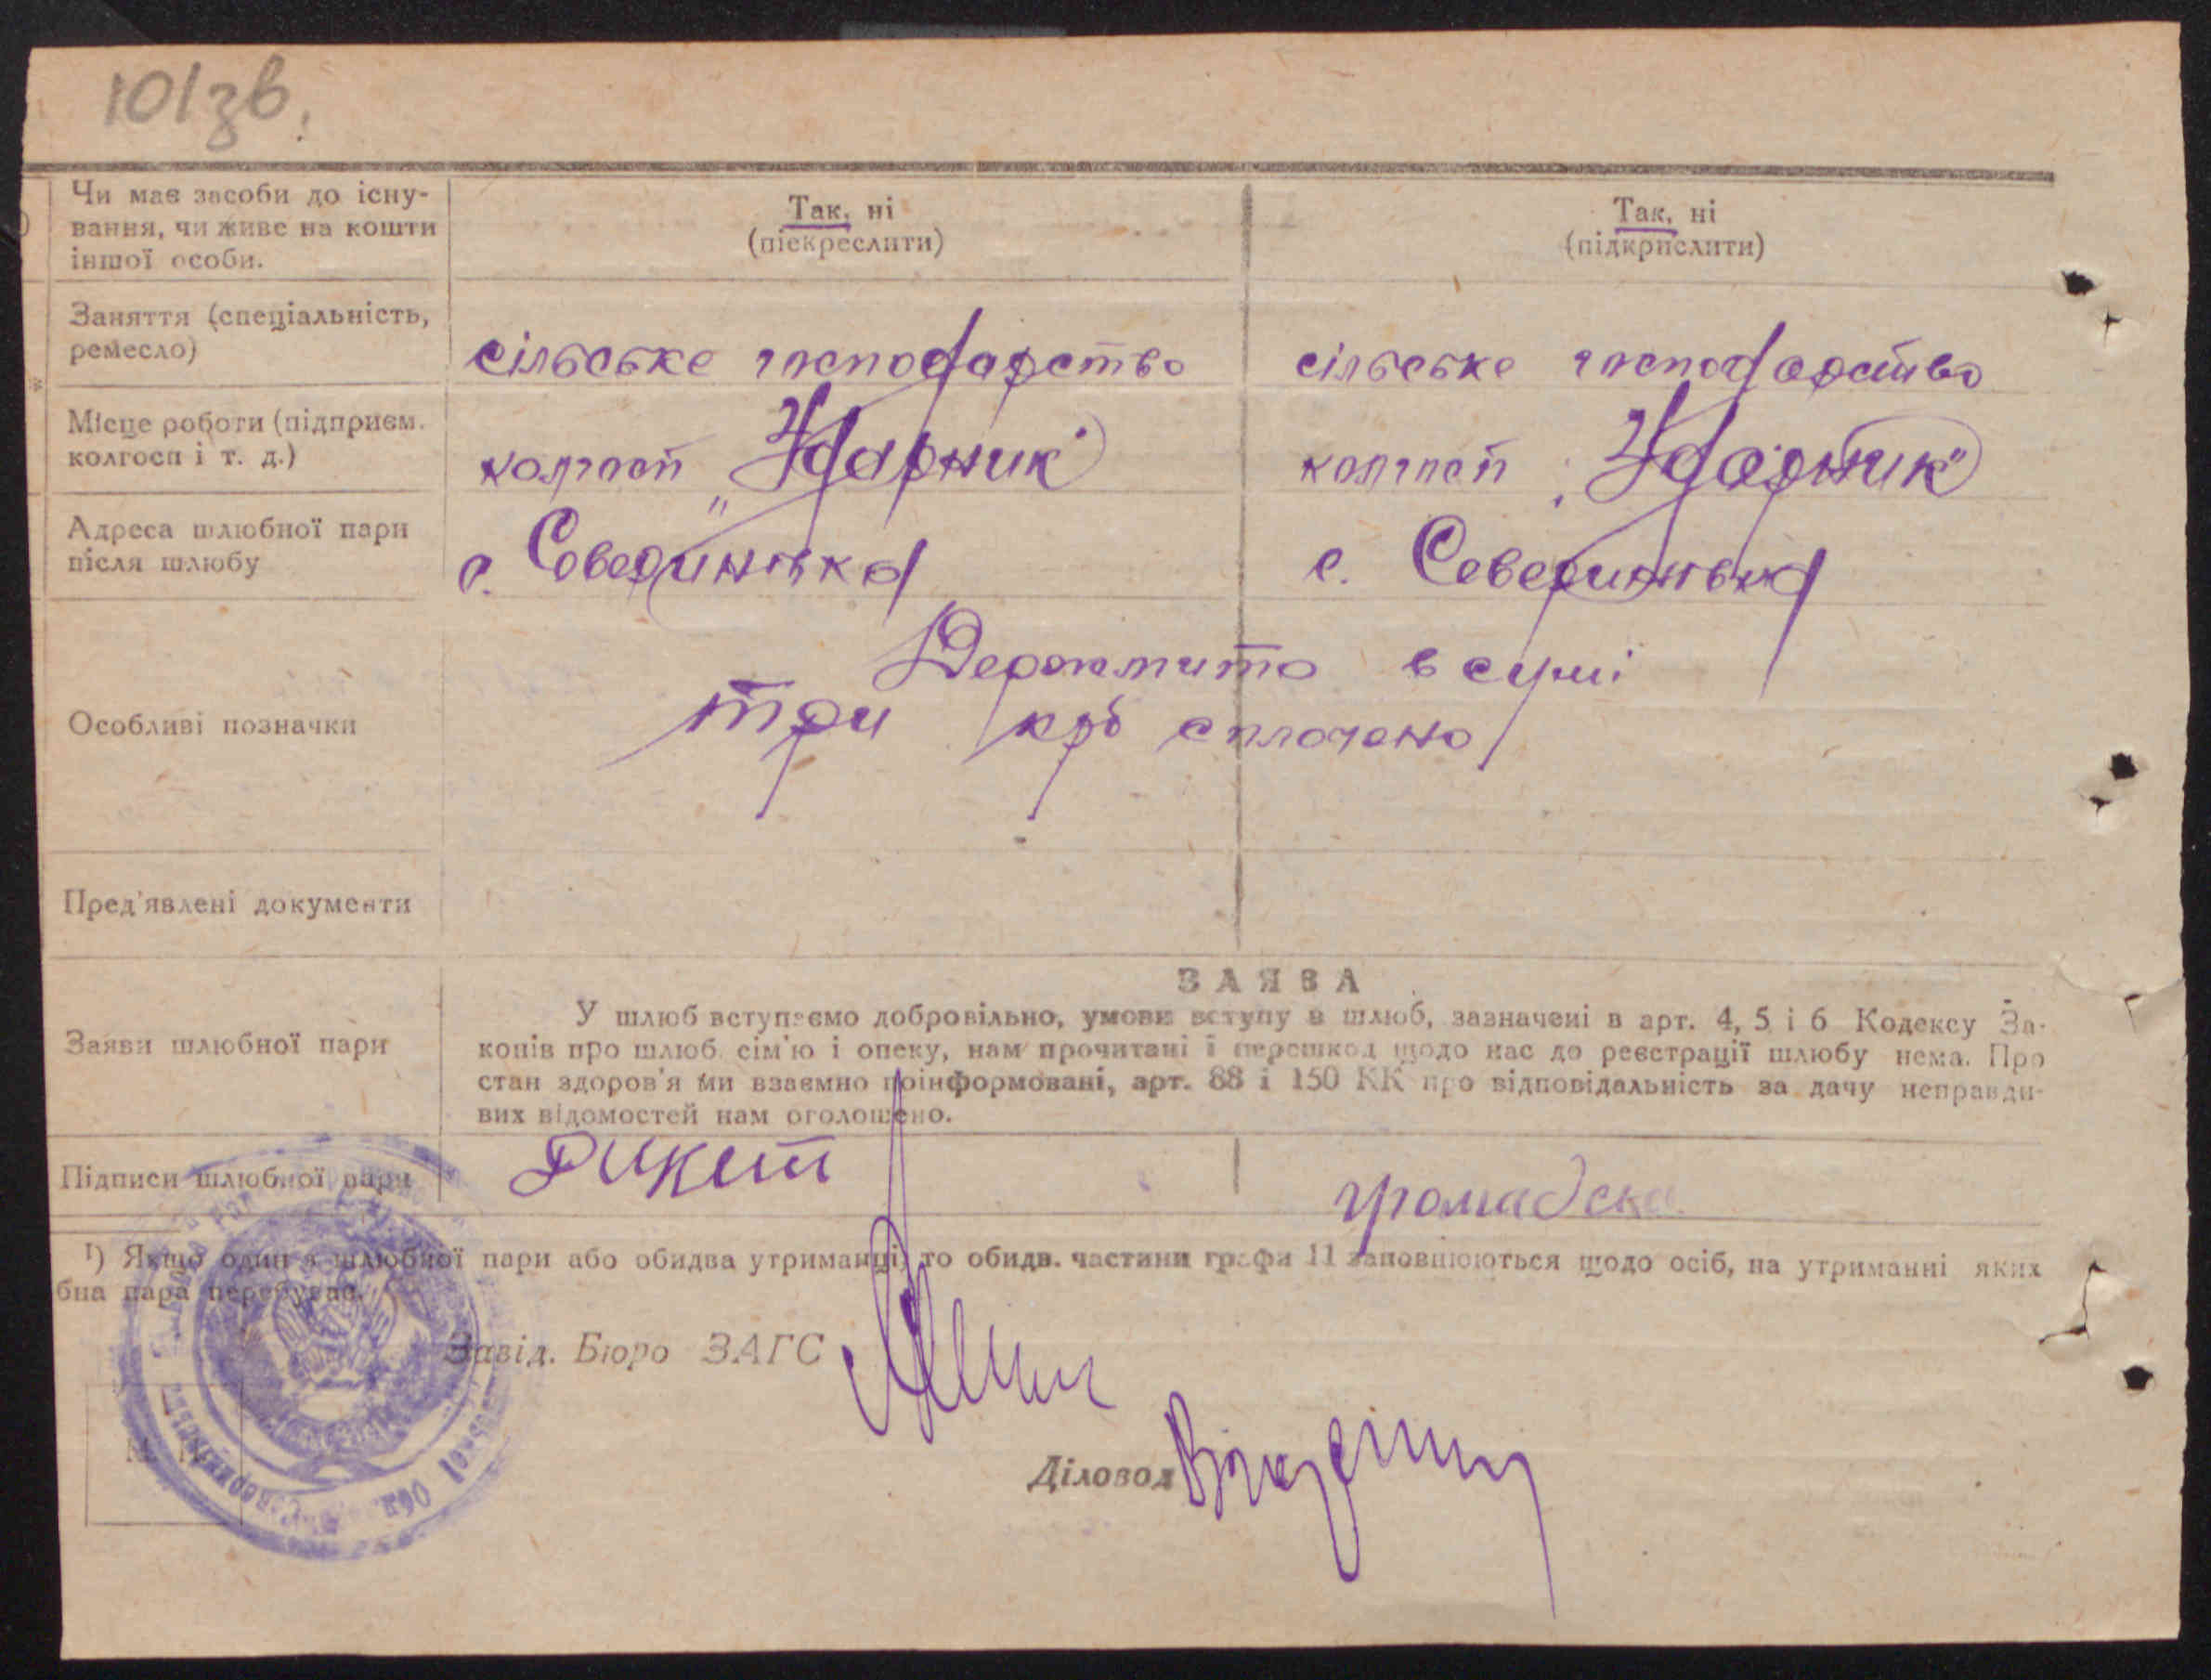 101зв.
Чи має засоби до існу-
вання, чи живе на кошти
іншої особи.
Так, ні
(піекреслити)
Так, ні
(підкрислити)
Заняття (спеціальність,
ремесло)
сільське господарство
сільське господарство
Місце роботи (підприєм.
колгосп і т. д.)
колгосп „Ударник"
колгосп „Ударник"
Адреса шлюбної пари
після шлюбу
с. Северинівка
с. Северинівка
Особливі позначки
Держмито в сумі
три крб сплочено
Пред'явлені документи
Заяви шлюбної пари
ЗАЯВА
У шлюб вступаємо добровільно, умови вступу в шлюб, зазначені в арт. 4, 5 і 6 Кодексу За-
конів про шлюб, сім'ю і опеку, нам прочитані і перешкод щодо нас до реєстрації шлюбу нема. Про
стан здоров'я ми взаємно поінформовані, арт. 88 і 150 КК про відповідальність за дачу неправди-
вих відомостей нам оголошено.
Підписи шлюбної пари
громадска
1) Якщо один з шлюбної пари або обидва утриманці, то обидв. частини графи 11 заповнюються щодо осіб, на утриманні яких
бна пара перебуває.
Завід. Бюро ЗАГС
Діловод